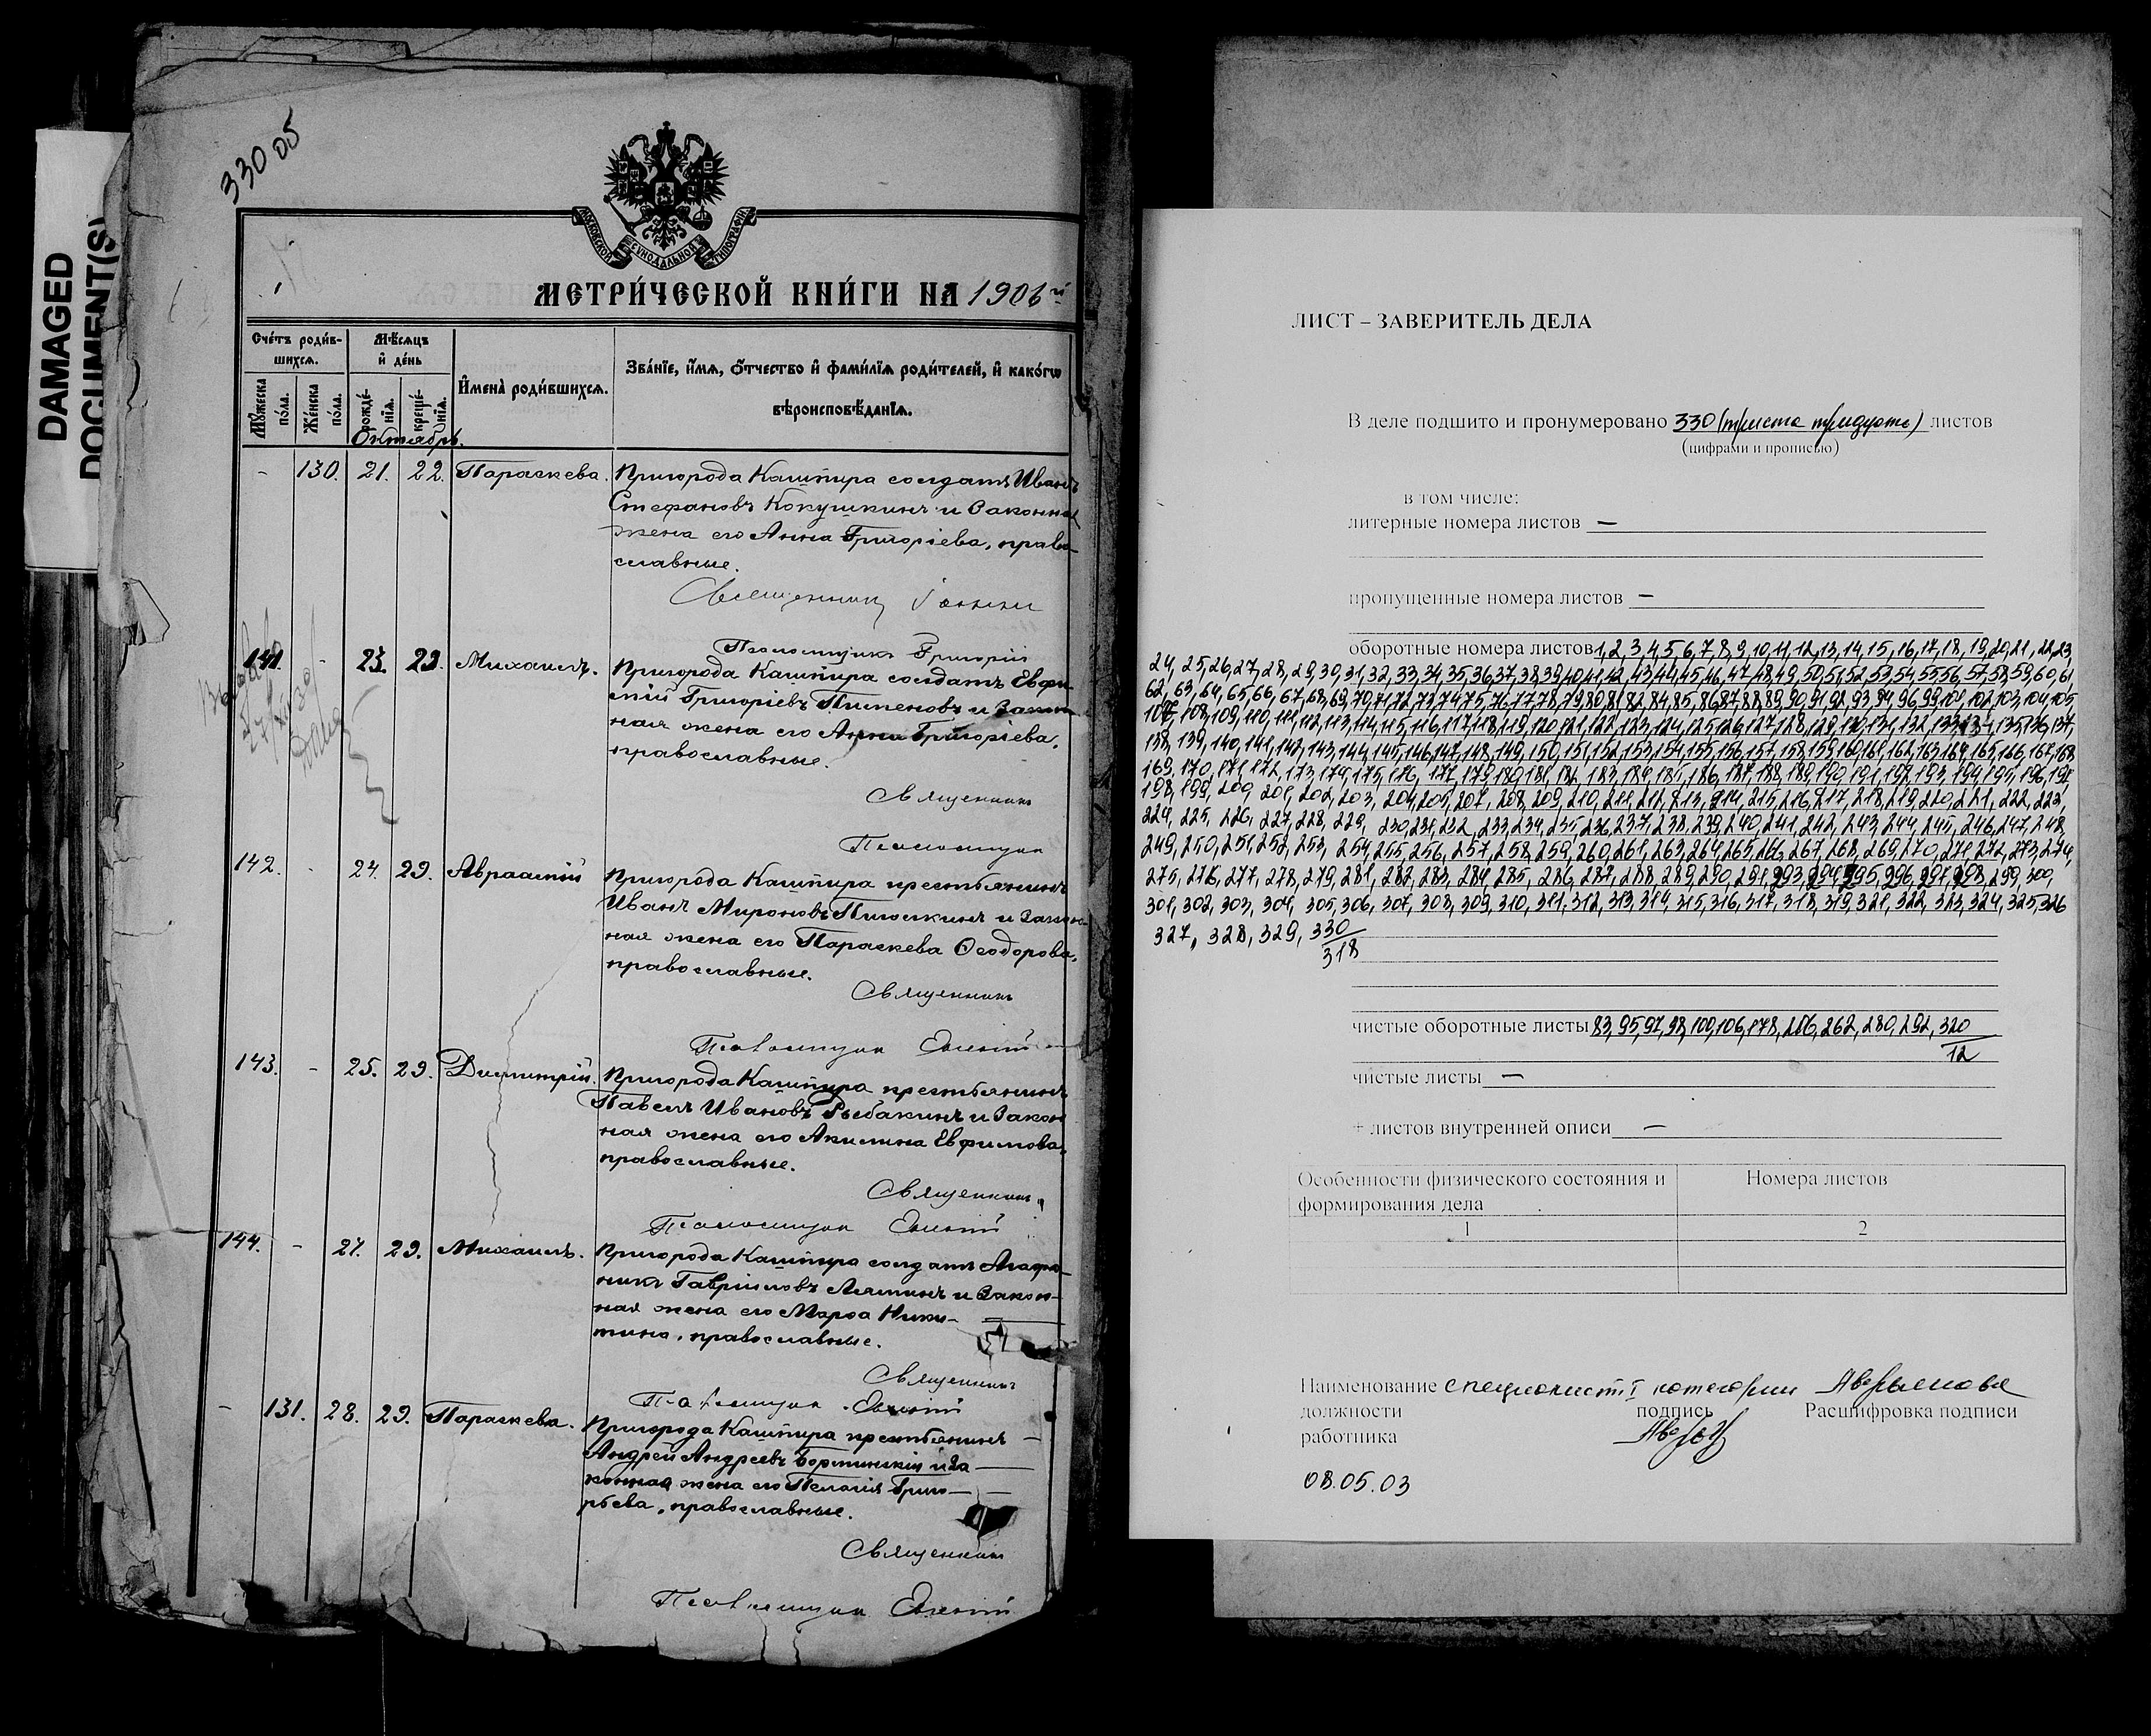 DAMAGED
DOCUMENT(S)
330 об
МОСКОВСКОЙ СѴНОДАЛЬНОЙ ТИПОГРАФІИ
МЕТРИ́ЧЕСКОЙ КНИ́ГИ НА 1906й
Сче́тъ роди́в-
шихся.
Мѣ́сяцъ
и҆ де́нь
И҆мена̀ роди́вшихся.
Зва́нїе, и҆́мя, ѻ҆́тчество и҆ фами́лїя роди́телей, и҆ како́гѡ
вѣроисповѣ́данїя.
Мꙋжеска по́ла.
Же́нска по́ла.
рожде́нїя.
креще́нїя.
Октябрь.
- 130. 21. 22. Параскева. Пригорода Кашпира солдатъ Иванъ
Стефановъ Кокушкинъ и законная
жена его Анна Григорiева, право-
славные.
Священникъ
Псаломщикъ Григорій
141. - 23. 29. Михаилъ. Пригорода Кашпира солдатъ Евфи-
мій Григоріевъ Пименовъ и закон-
ная жена его Анна Григоріева,
православные.
Священникъ
Псаломщикъ
142. - 24. 29. Авраамій Пригорода Кашпира крестьянинъ
Иванъ Мироновъ и закон-
ная жена его Параскева Ѳеодорова,
православные.
Священникъ
Псаломщикъ
143. - 25. 29. Димитрій. Пригорода Кашпира крестьянинъ
Павелъ Ивановъ Рыбакинъ и закон
ная жена его Акилина Евфимова,
православные.
Священникъ
Псаломщикъ
144. - 27. 29. Михаилъ. Пригорода Кашпира солдатъ Агафо-
никъ Гавріиловъ и закон-
ная жена его Марѳа Ники-
тина, православные.
Священникъ
Псаломщикъ
- 131. 28. 29. Параскева. Пригорода Кашпира крестьянинъ
Андрей Андреевъ и за
конная жена его Пелагія Григо-
рьева, православные.
Священникъ
Псаломщикъ
ЛИСТ – ЗАВЕРИТЕЛЬ ДЕЛА
В деле подшито и пронумеровано 330 (триста тридцать) листов
(цифрами и прописью)
в том числе:
литерные номера листов —
пропущенные номера листов —
оборотные номера листов 1,2,3,4,5,6,7,8,9,10,11,12,13,14,15,16,17,18,19,20,21,22,23,
24,25,26,27,28,29,30,31,32,33,34,35,36,37,38,39,40,41,42,43,44,45,46,47,48,49,50,51,52,53,54,55,56,57,58,59,60,61,
62,63,64,65,66,67,68,69,70,71,72,73,74,75,76,77,78,79,80,81,82,84,85,86,87,88,89,90,91,92,93,94,96,99,101,102,103,104,105,
107,108,109,110,111,112,113,114,115,116,117,118,119,120,121,122,123,124,125,126,127,128,129,130,131,132,133,134,135,136,137,
138,139,140,141,142,143,144,145,146,147,148,149,150,151,152,153,154,155,156,157,158,159,160,161,162,163,164,165,166,167,168
169,170,171,172,173,174,175,176,177,179,180,181,182,183,184,185,186,187,188,189,190,191,192,193,194,195,196,197
198,199,200,201,202,203,204,205,207,208,209,210,211,212,213,214,215,216,217,218,219,220,221,222,223,
224,225,226,227,228,229,230,231,232,233,234,235,236,237,238,239,240,241,242,243,244,245,246,247,248,
249,250,251,252,253,254,255,256,257,258,259,260,261,263,264,265,266,267,268,269,270,271,272,273,274,
275,276,277,278,279,281,282,283,284,285,286,287,288,289,290,291,293,294,295,296,297,298,299,300,
301,302,303,304,305,306,307,308,309,310,311,312,313,314,315,316,317,318,319,321,322,323,324,325,326
327,328,329,330
318
чистые оборотные листы 83,95,97,98,100,106,178,206,262,280,292,320
12
чистые листы —
+ листов внутренней описи —
Особенности физического состояния и
формирования дела
Номера листов
1 2
Наименование специалист I категории Аверьянова
должности подпись Расшифровка подписи
работника
08.05.03